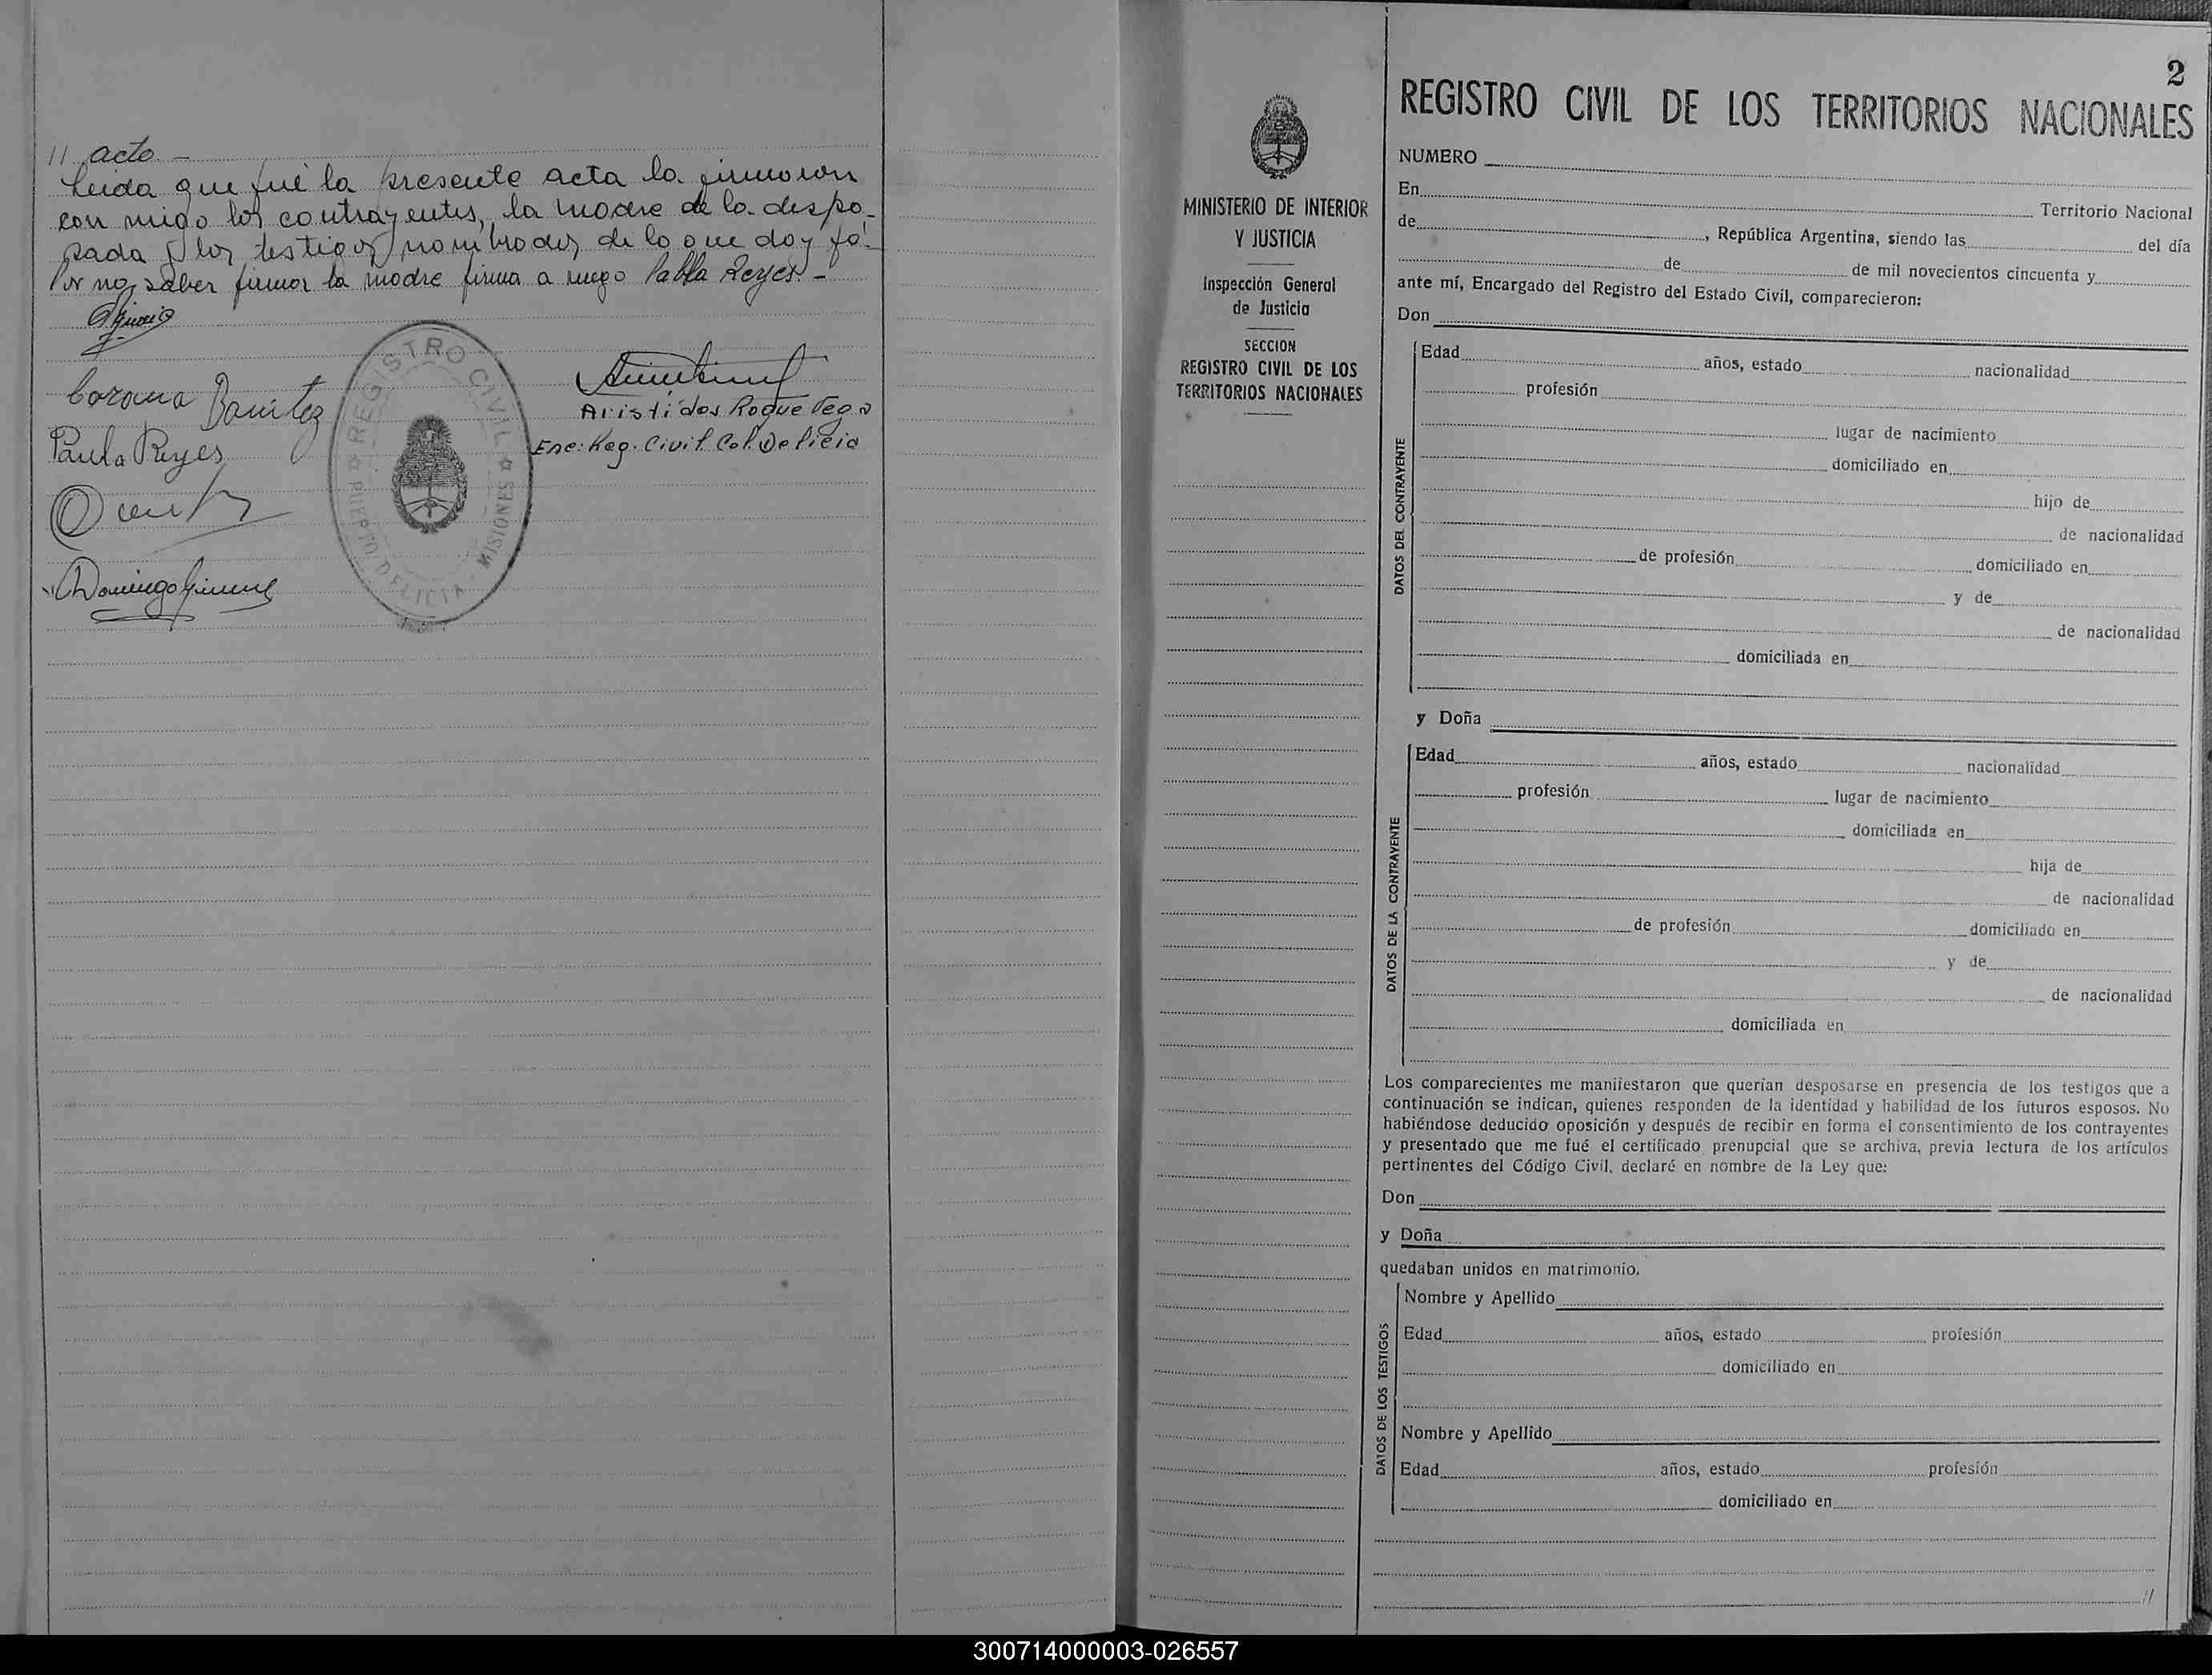 // acto. —
Leida que fué la presente acta la firmaron
con migo los contrayentes, la madre de la despo-
sada y los testigos nombrados, de lo que doy fé.
Por no saber firmar la madre firma a ruego Pabla Reyes. —
Corona Benitez
Paula Reyes
Domingo Gimenez
REGISTRO CIVIL
PUERTO DELICIA - MISIONES
Aristides Roque Vega
Enc: Reg. Civil Col. Delicia
2
MINISTERIO DE INTERIOR
Y JUSTICIA
Inspección General
de Justicia
SECCION
REGISTRO CIVIL DE LOS
TERRITORIOS NACIONALES
REGISTRO CIVIL DE LOS TERRITORIOS NACIONALES
NUMERO
En Territorio Nacional
de , República Argentina, siendo las del día
de de mil novecientos cincuenta y
ante mí, Encargado del Registro del Estado Civil, comparecieron:
Don
DATOS DEL CONTRAYENTE
Edad años, estado nacionalidad
profesión
lugar de nacimiento
domiciliado en
hijo de
de nacionalidad
de profesión domiciliado en
y de
de nacionalidad
domiciliada en
y Doña
DATOS DE LA CONTRAYENTE
Edad años, estado nacionalidad
profesión lugar de nacimiento
domiciliada en
hija de
de nacionalidad
de profesión domiciliado en
y de
de nacionalidad
domiciliada en
Los comparecientes me manifestaron que querían desposarse en presencia de los testigos que a
continuación se indican, quienes responden de la identidad y habilidad de los futuros esposos. No
habiéndose deducido oposición y después de recibir en forma el consentimiento de los contrayentes
y presentado que me fué el certificado prenupcial que se archiva, previa lectura de los artículos
pertinentes del Código Civil, declaré en nombre de la Ley que:
Don
y Doña
quedaban unidos en matrimonio.
DATOS DE LOS TESTIGOS
Nombre y Apellido
Edad años, estado profesión
domiciliado en
Nombre y Apellido
Edad años, estado profesión
domiciliado en
//
300714000003-026557